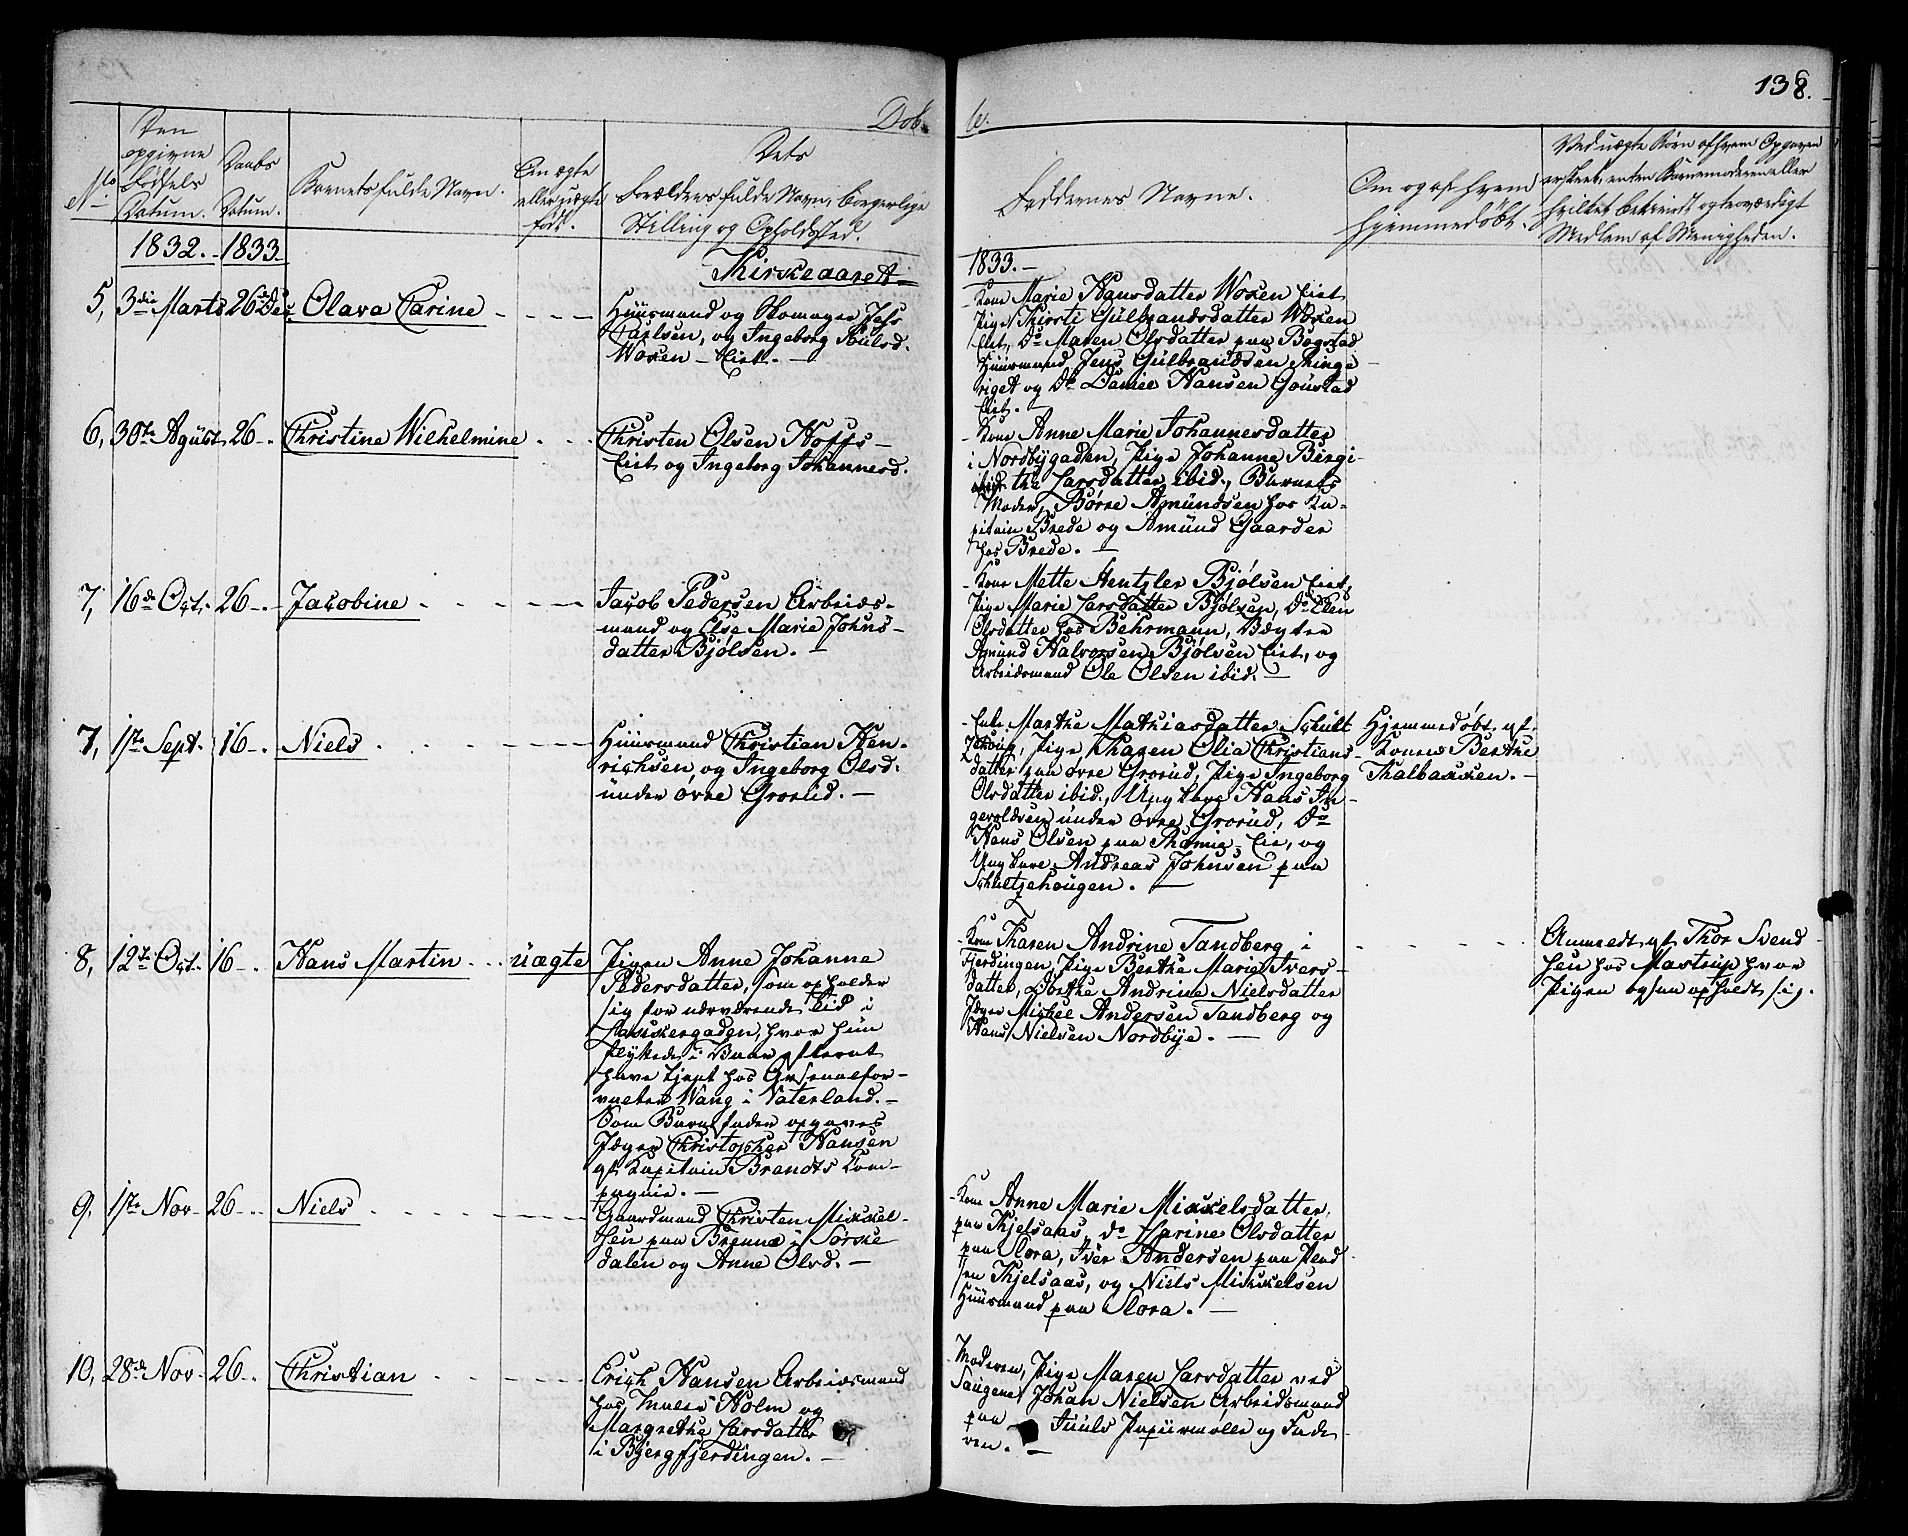 138.
Døb-
te.
No
Den
opgivne
Fødsels
Datum.
Daabs
Datum.
Barnets fulde Navn.
Om ægte
eller uægte
født.
Dets
Forældres fulde Navn, borgerlige
Stilling og Opholdssted.
Faddernes Navne.
Om og af hvem
hjemmedøbt.
Ved uægte Børn af hvem Opgaven
er skeet, enten Barnemoderen eller
hvilket bekjendt og troværdigt
Medlem af Menigheden.
1832. 1833.
Kirkeaaret
1833.
5, 3die Marts 26 Dec. Olava Carine
Huusmand og Skomager
Carlsen, og Ingeborg Paulsd.
Woxen-Eiet.
Kone Marie Hansdatter Woxen Eiet
Pige Kirsti Gulbrandsdatter Woxen
Eiet, Do Maren Olsdatter paa Bogstad
Huusmand Jens Gulbrandsen Ringe
riget og Do Daniel Hansen Goustad
Eiet.
6, 30te August 26 Christine Wilhelmine
Christen Olsen Hoffs-
Eiet og Ingeborg Johannesd.
Kone Anne Marie Johannesdatter
i Nordbygaden, Pige Johanne Birgi-
the Larsdatter ibid., Barnets
Moder, Børre Amundsen hos Ka-
pitain Brede og Amund Gaarder
hos Brede.
7, 16de Oct. 26 Jacobine
Jacob Pedersen Arbeids-
mand og Else Marie Johns-
datter Bjølsen.
Kone Mette Hentzler Bjølsen Eiet,
Pige Marie Larsdatter Bjølsen, Do Elen
Olsdatter hos Behrmann, Bøgter
Amund Halvorsen Bjølsen Eiet, og
Arbeidsmand Ole Olsen ibid.
7, 1ste Sept. 16 Niels
Huusmand Christian Hen-
richsen, og Ingeborg Olsd.
under øvre Grorud.
Enke Marthe Mathiasdatter Schult
zehoug, Pige Karen Olia Christians-
datter paa øvre Grorud, Pige Ingeborg
Olsdatter ibid., Ung karl Hans In-
gevoldsen under øvre Grorud, Do
Hans Olsen paa Eie, og
Ung karl Andreas Johnsen paa
Schultzehougen.
Hjemmedøbt af
Konen Berthe
Thalbakken.
8, 12te Oct. 16 Hans Martin uægte
Pigen Anne Johanne
Pedersdatter, som opholder
sig for nærværende Tid i
Lakkergaden, hvor hun
flyttede i Vaar efterat
have tjent hos Arsenalfor-
valter Wang i Vaterland.
Som Barnefader opgaves
Jæger Christopher Hansen
af Kapitain Brandts Kom-
pagnie.
Kone Karen Andrine Tandberg i
Fjerdingen, Pige Berthe Marie Ivers-
datter, Dorthe Andrine Nielsdatter
Jæger Michel Andersen Tandberg og
Hans Nielsen Nordbye.
Anmeldt af Thor Svend-
sen hos Mastrup hvor
Pigen ogsaa opholdt sig.
9, 1ste Nov 26 Niels
Gaardmand Christen Mikkel-
sen paa Brenna i Sørke
dalen og Anne Olsd.
Kone Anne Marie Mikkelsdatter,
paa Kjelsaas, do Karine Olsdatter
paa Slora, Iver Andersen paa
Kjelsaas, og Niels Mikkelsen
Huusmand paa Slora.
10, 28de Nov. 26 Christian
Erich Hansen Arbeidsmand
hos Holm og
Margrethe Larsdatter
i Bjergfjerdingen.
Moderen, Pige Maren Larsdatter ved
Saugene, Johan Nielsen Arbeidsmand
paa Juuls Papiirmølle og Fade-
ren.